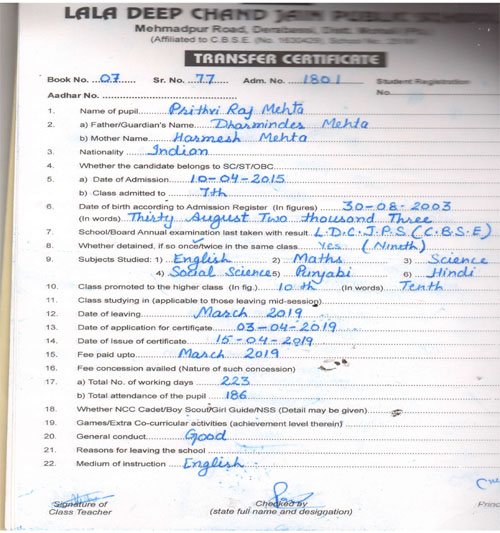 LALA DEEP CHAND JAIN PUBLIC
Mehmadpur Road, Derabassi, Distt. Mohali
(Affiliated to C.B.S.E. (No. 1630429)
TRANSFER CERTIFICATE
Book No. 07 Sr. No. 77 Adm. No. 1801 Student Registration
Aadhar No. No.
1. Name of pupil Prithvi Raj Mehta
2. a) Father/Guardian's Name Dharminder Mehta
b) Mother Name Harmesh Mehta
3. Nationality Indian
4. Whether the candidate belongs to SC/ST/OBC
5. a) Date of Admission 10-04-2015
b) Class admitted to 7th
6. Date of birth according to Admission Register (In figures) 30-08-2003
(In words) Thirty August Two thousand Three
7. School/Board Annual examination last taken with result L.D.C.J.P.S (C.B.S.E)
8. Whether detained, if so once/twice in the same class Yes (Nineth)
9. Subjects Studied: 1) English 2) Maths 3) Science
4) Social Science 5) Punjabi 6) Hindi
10. Class promoted to the higher class (In fig.) 10th (In words) Tenth
11. Class studying in (applicable to those leaving mid-session)
12. Date of leaving March 2019
13. Date of application for certificate 03-04-2019
14. Date of Issue of certificate 15-04-2019
15. Fee paid upto March 2019
16. Fee concession availed (Nature of such concession)
17. a) Total No. of working days 223
b) Total attendance of the pupil 186
18. Whether NCC Cadet/Boy Scout/Girl Guide/NSS (Detail may be given)
19. Games/Extra Co-curricular activities (achievement level therein)
20. General conduct Good
21. Reasons for leaving the school
22. Medium of instruction English
Signature of Checked by
Class Teacher (state full name and designation)